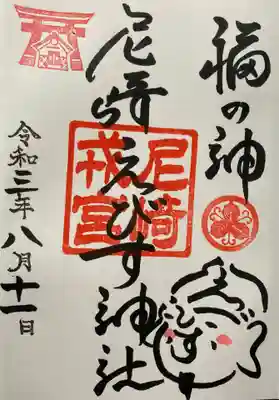 福の神
尼崎えびす神社
尼崎
戎宮
令和三年八月十一日
えびす